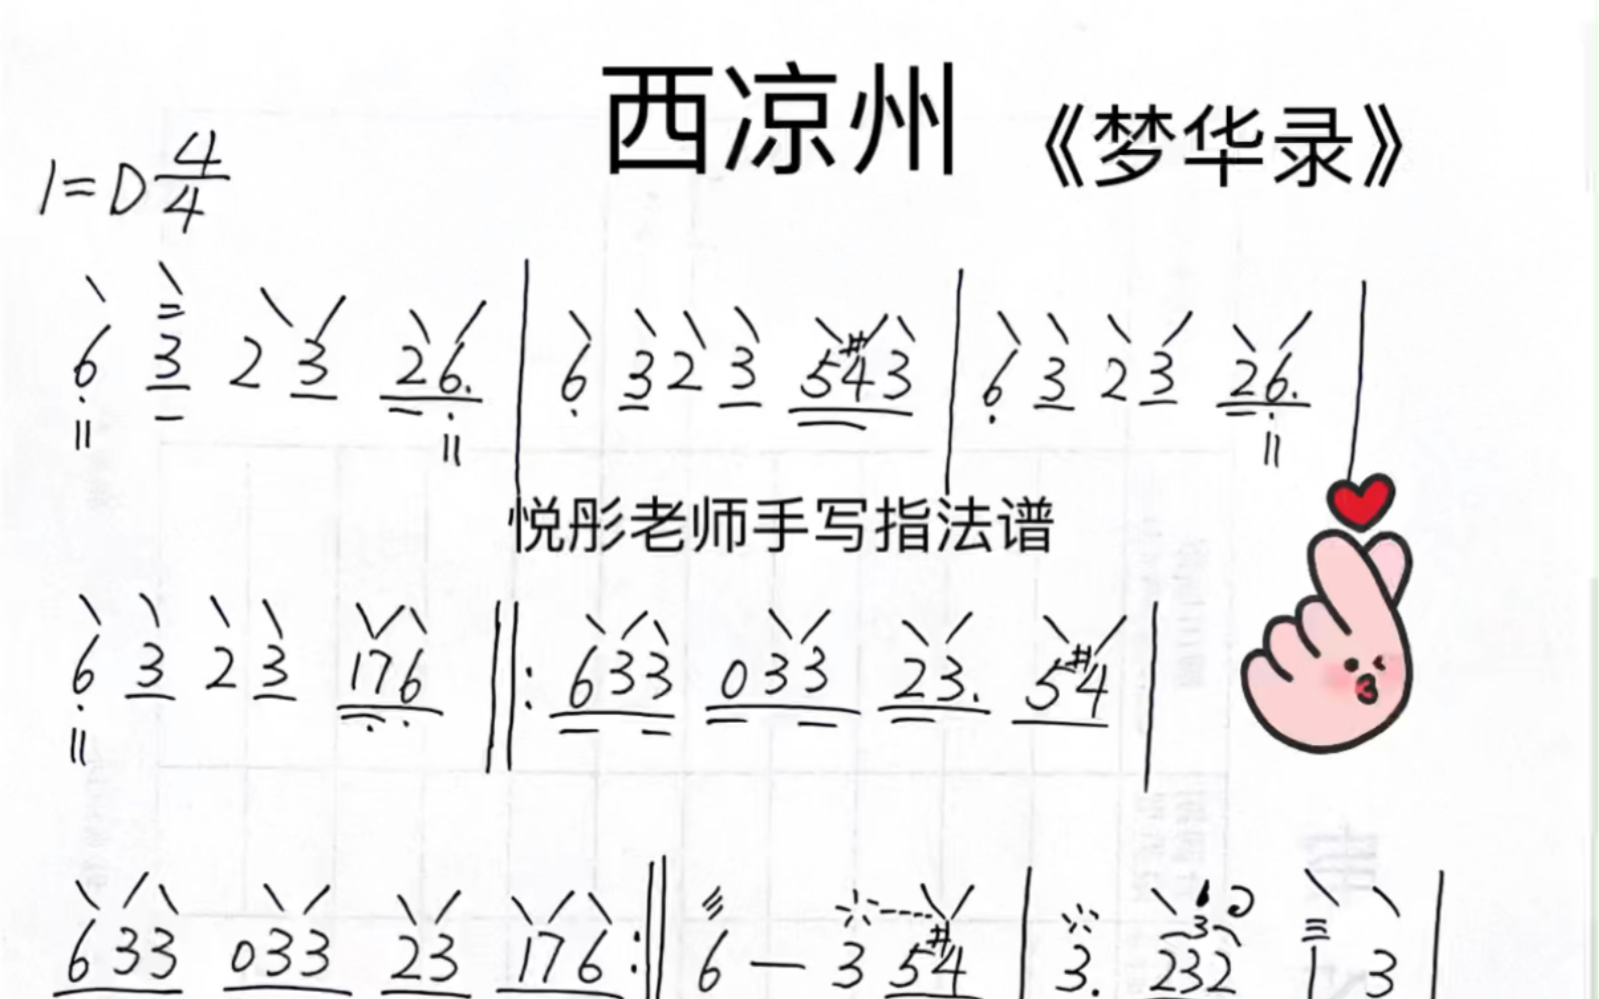 西凉州 《梦华录》
1=D 4/4
6 3 2 3 26. | 6 3 2 3 5#43 | 6 3 2 3 26. |
悦彤老师手写指法谱
6 3 2 3 176 ‖: 633 033 23. 5#4 |
633 033 23 176 :‖ 6 — 3 5#4 | 3. 232 1 3 |